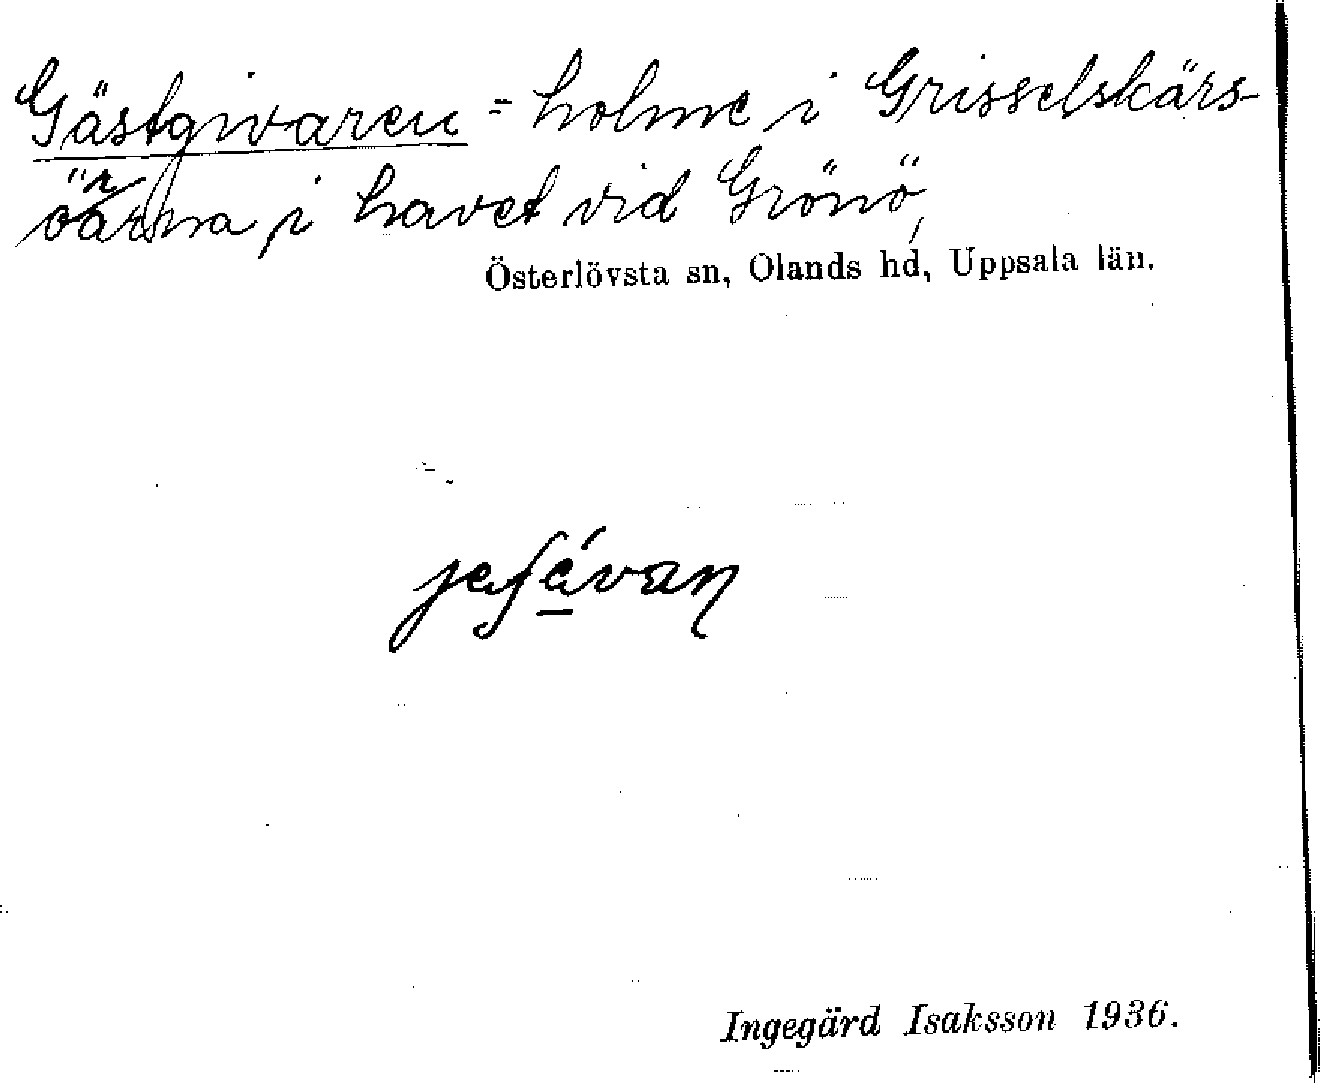 Gästgivaren = holme i Grisselskärs-
örna i havet vid Grönö,
Österlövsta sn, Olands hd, Uppsala län.
jeſávaŋ
Ingegärd Isaksson 1936.